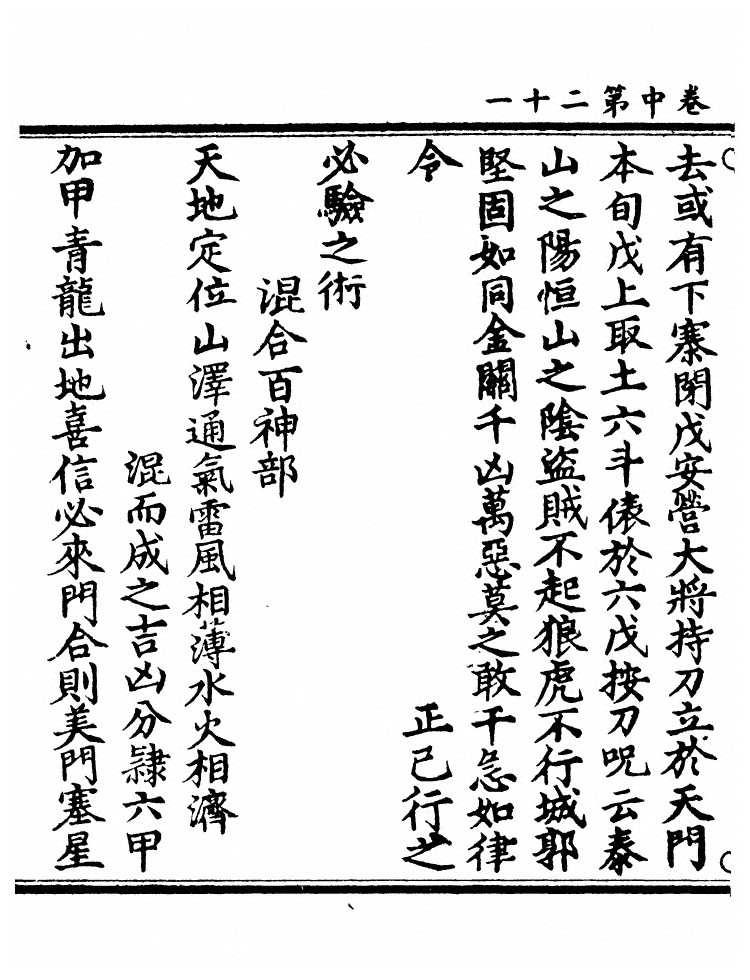 卷中第二十一
去或有下寨閉戊安營大將持刀立於天門
本旬戊上取土六斗俵於六戊按刀呪云泰
山之陽恒山之陰盜賊不起狼虎不行城郭
堅固如同金關千凶萬惡莫之敢干急如律
令　正己行之
必驗之術
混合百神部
天地定位山澤通氣雷風相薄水火相濟
混而成之吉凶分隸六甲
加甲青龍出地喜信必來門合則美門塞星